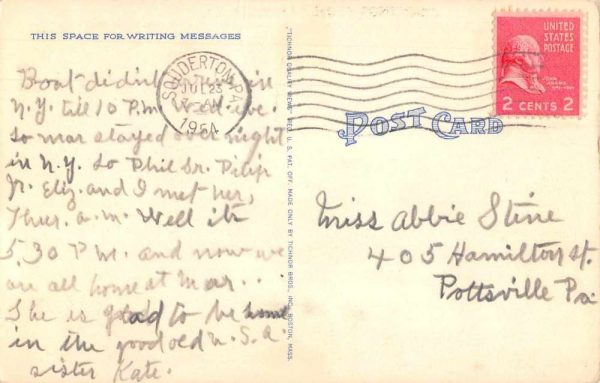 THIS SPACE FOR WRITING MESSAGES
Boat didn't in
N.Y. till 10 P.M. eve.
So mar stayed over night
in N.Y. So Phil Sr. Philip
Jr. Eliz. and I met her,
Thur. a.m. Well it's
5,30 P.M. and now we
are all home at Mar..
She is glad to be home
in the good old U.S.A.
sister Kate.
"TICHNOR QUALITY VIEWS," REG. U. S. PAT. OFF. MADE ONLY BY TICHNOR BROS., INC., BOSTON, MASS.
SOUDERTON, PA.
JUL 23
1954
UNITED
STATES
POSTAGE
JOHN
ADAMS
2 CENTS 2
POST CARD
Miss Abbie Stine
405 Hamilton St.
Pottsville Pa.